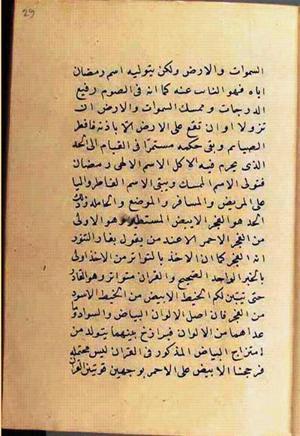 29
السموات والارض ولكن بتوليه اسم رمضان
اياه فهو الناس عنه كما انه فى الصوم رفيع
الدرجات وممسك السموات والارض ان
تزولا او ان تقع على الارض الا باذنه فافطر
الصيام وبقى حكمه مستمرا فى القيام الى الحد
الذى يحرم فيه الاكل الاسم الالهى رمضان
فتولى الاسم الممسك ويبقى الاسم الفاطر واليا
على المريض والمسافر و الموضع والحامل وذلك
الحد هو الفجر الابيض المستطير وهو الاولى
من الفجر الاحمر الا عند من يقول بفار التنور
انه الفجر كما ان الاخذ بالتواتر من الاخذ اولى
بالخبر الواحد الصحيح والقران متواتر وهو القائل
حتى يتبين لكم الخيط الابيض من الخيط الاسود
من الفجر فان اصل الالوان البياض والسواد وما
عداهما من الالوان فبرازخ بينهما يتولد من
امتزاج البياض المذكور فى القران ليس محتمله
فرجحنا الابيض على الاحمر بوجهين قويتين القران